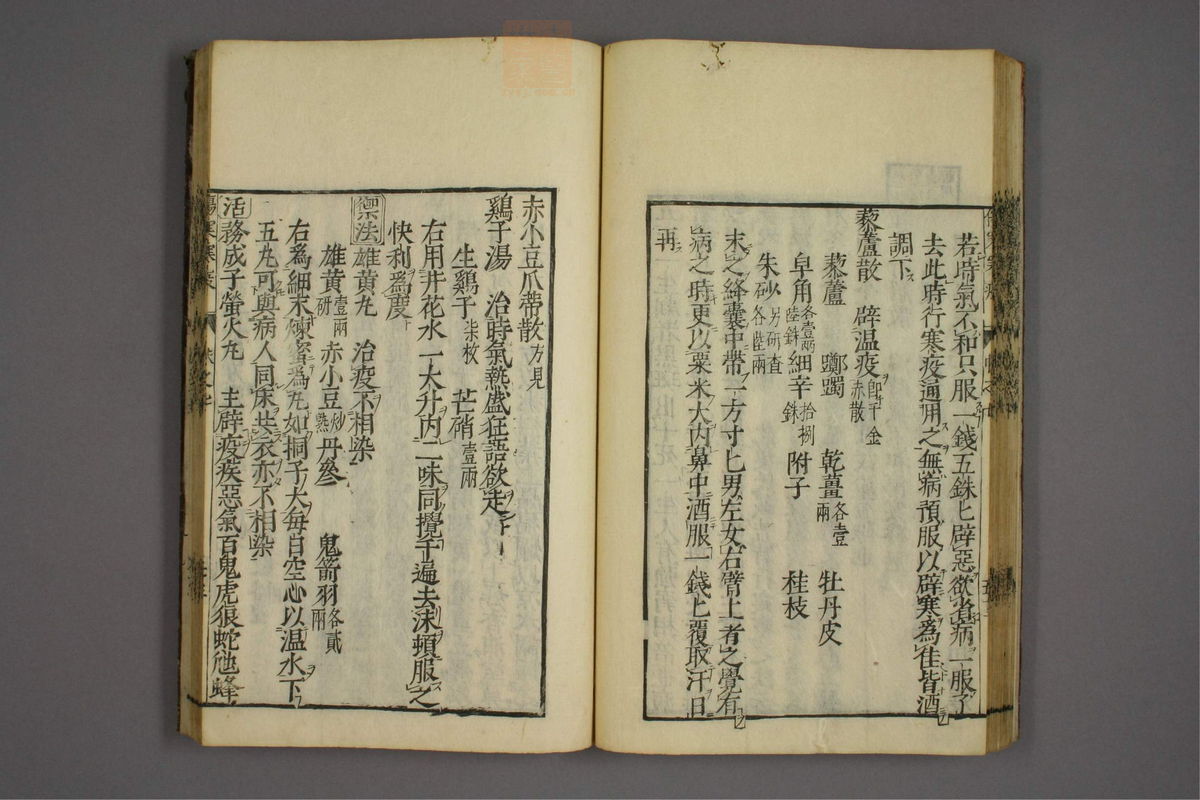 若時氣不和只服一錢五銖匕辟惡欲省病一服了
去此時行寒疫通用之無病預服以辟寒爲佳皆酒
調下
藜蘆散 辟温疫即千金赤散
藜蘆 躑躅 乾薑各壹兩 牡丹皮
皁角各壹兩陸銖 細辛拾捌銖 附子 桂枝
朱砂另研各陸兩
末之絳囊中帶一方寸匕男左女右臂上者之覺有
病之時更以粟米大内鼻中酒服一錢匕覆取汗日
再
赤小豆瓜蔕散方見
鷄子湯 治時氣熱盛狂語欲走
生鷄子柒枚 芒硝壹兩
右用井花水一大升内二味同攪千遍去沫頓服之
快利爲度
禦法雄黄丸 治疫不相染
雄黄壹兩研 赤小豆炒熟 丹參 鬼箭羽各貳兩
右爲細末煉蜜爲丸如桐子大每日空心以温水下
五丸可與病人同床共衣亦不相染
活務成子螢火丸 主辟疫疾惡氣百鬼虎狼蛇虺蜂